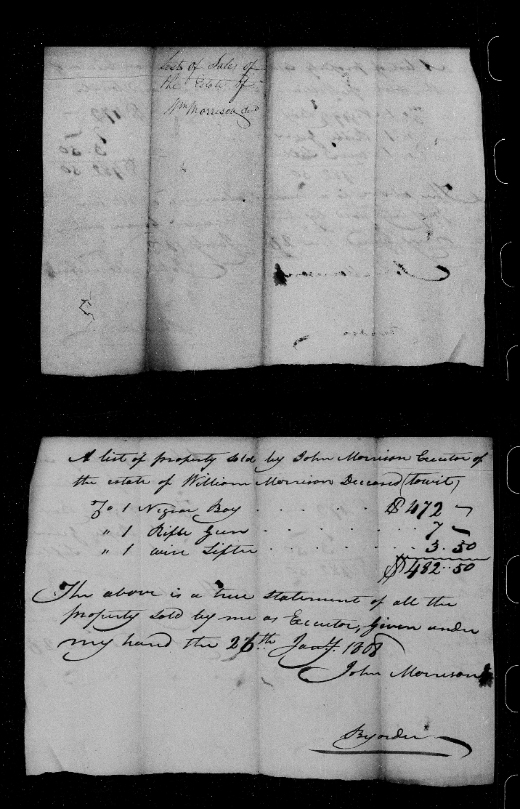 List of Sales of
the Estate of
Wm Morrison decd
A list of property sold by John Morrison Executor of
the estate of William Morrison Deceased (towit)
To 1 Negroe Boy . . . . . $472 –
" 1 Rifle Gun . . . . . 7 –
" 1 wire Sifter . . . . . 3.50
$482.50
The above is a true statement of all the
property sold by me as Executor, given under
my hand the 26th Jany. 1808
John Morrison
By order